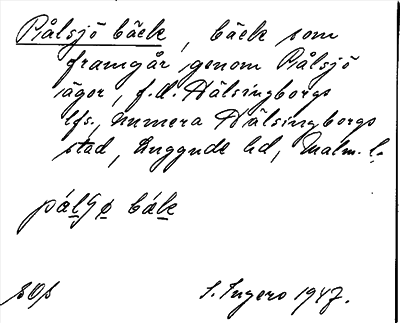 Pålsjö bäck, bäck som
framgår genom Pålsjö
ägor, f.d. Hälsingborgs
lfs., numera Hälsingborgs
stad, Luggude hd, Malm. l.
pálʃø bák
S. Ingers 1947.